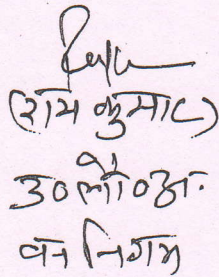 (राम कुमार)
उ०लौ०अ.
वन निगम